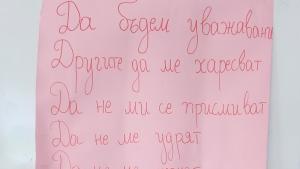 Да бъдем уважавани
Другите да ме харесват
Да не ми се присмиват
Да не ме удрят
Да не ме